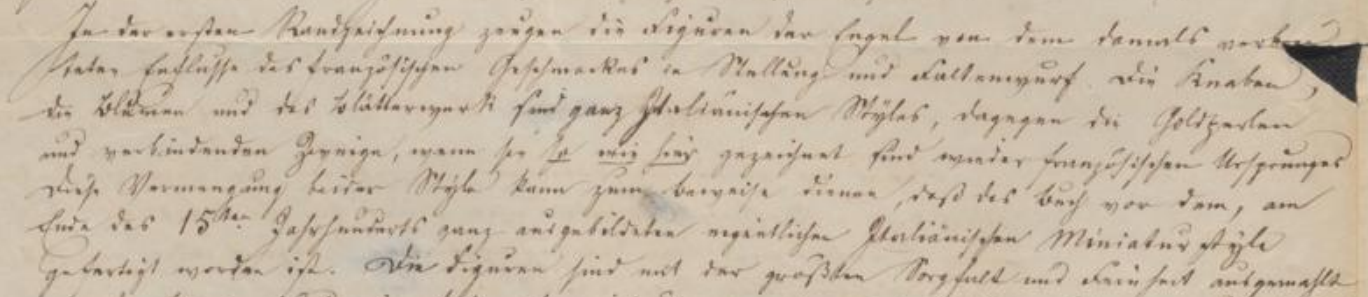 In der ersten Randzeichnung zeugen die Figuren der Engel von dem damals
steten Einflusse des französischen Geschmackes in Stellung und Faltenwurf. Die Knaben,
die Blumen und das Blätterwerk sind ganz Italiänischen Styles, dagegen die Goldperlen
und verbindenden Zweige, wenn sie so wie hier gezeichnet sind wieder französischen Ursprunges
Diese Vermengung beider Style kann zum Beweise dienen, daß das Buch vor dem, am
Ende des 15ten Jahrhunderts ganz ausgebildeten eigentlichen Italiänischen Miniatur style
gefertigt worden ist. Die Figuren sind mit der größten Sorgfalt und Feinheit ausgemahlt